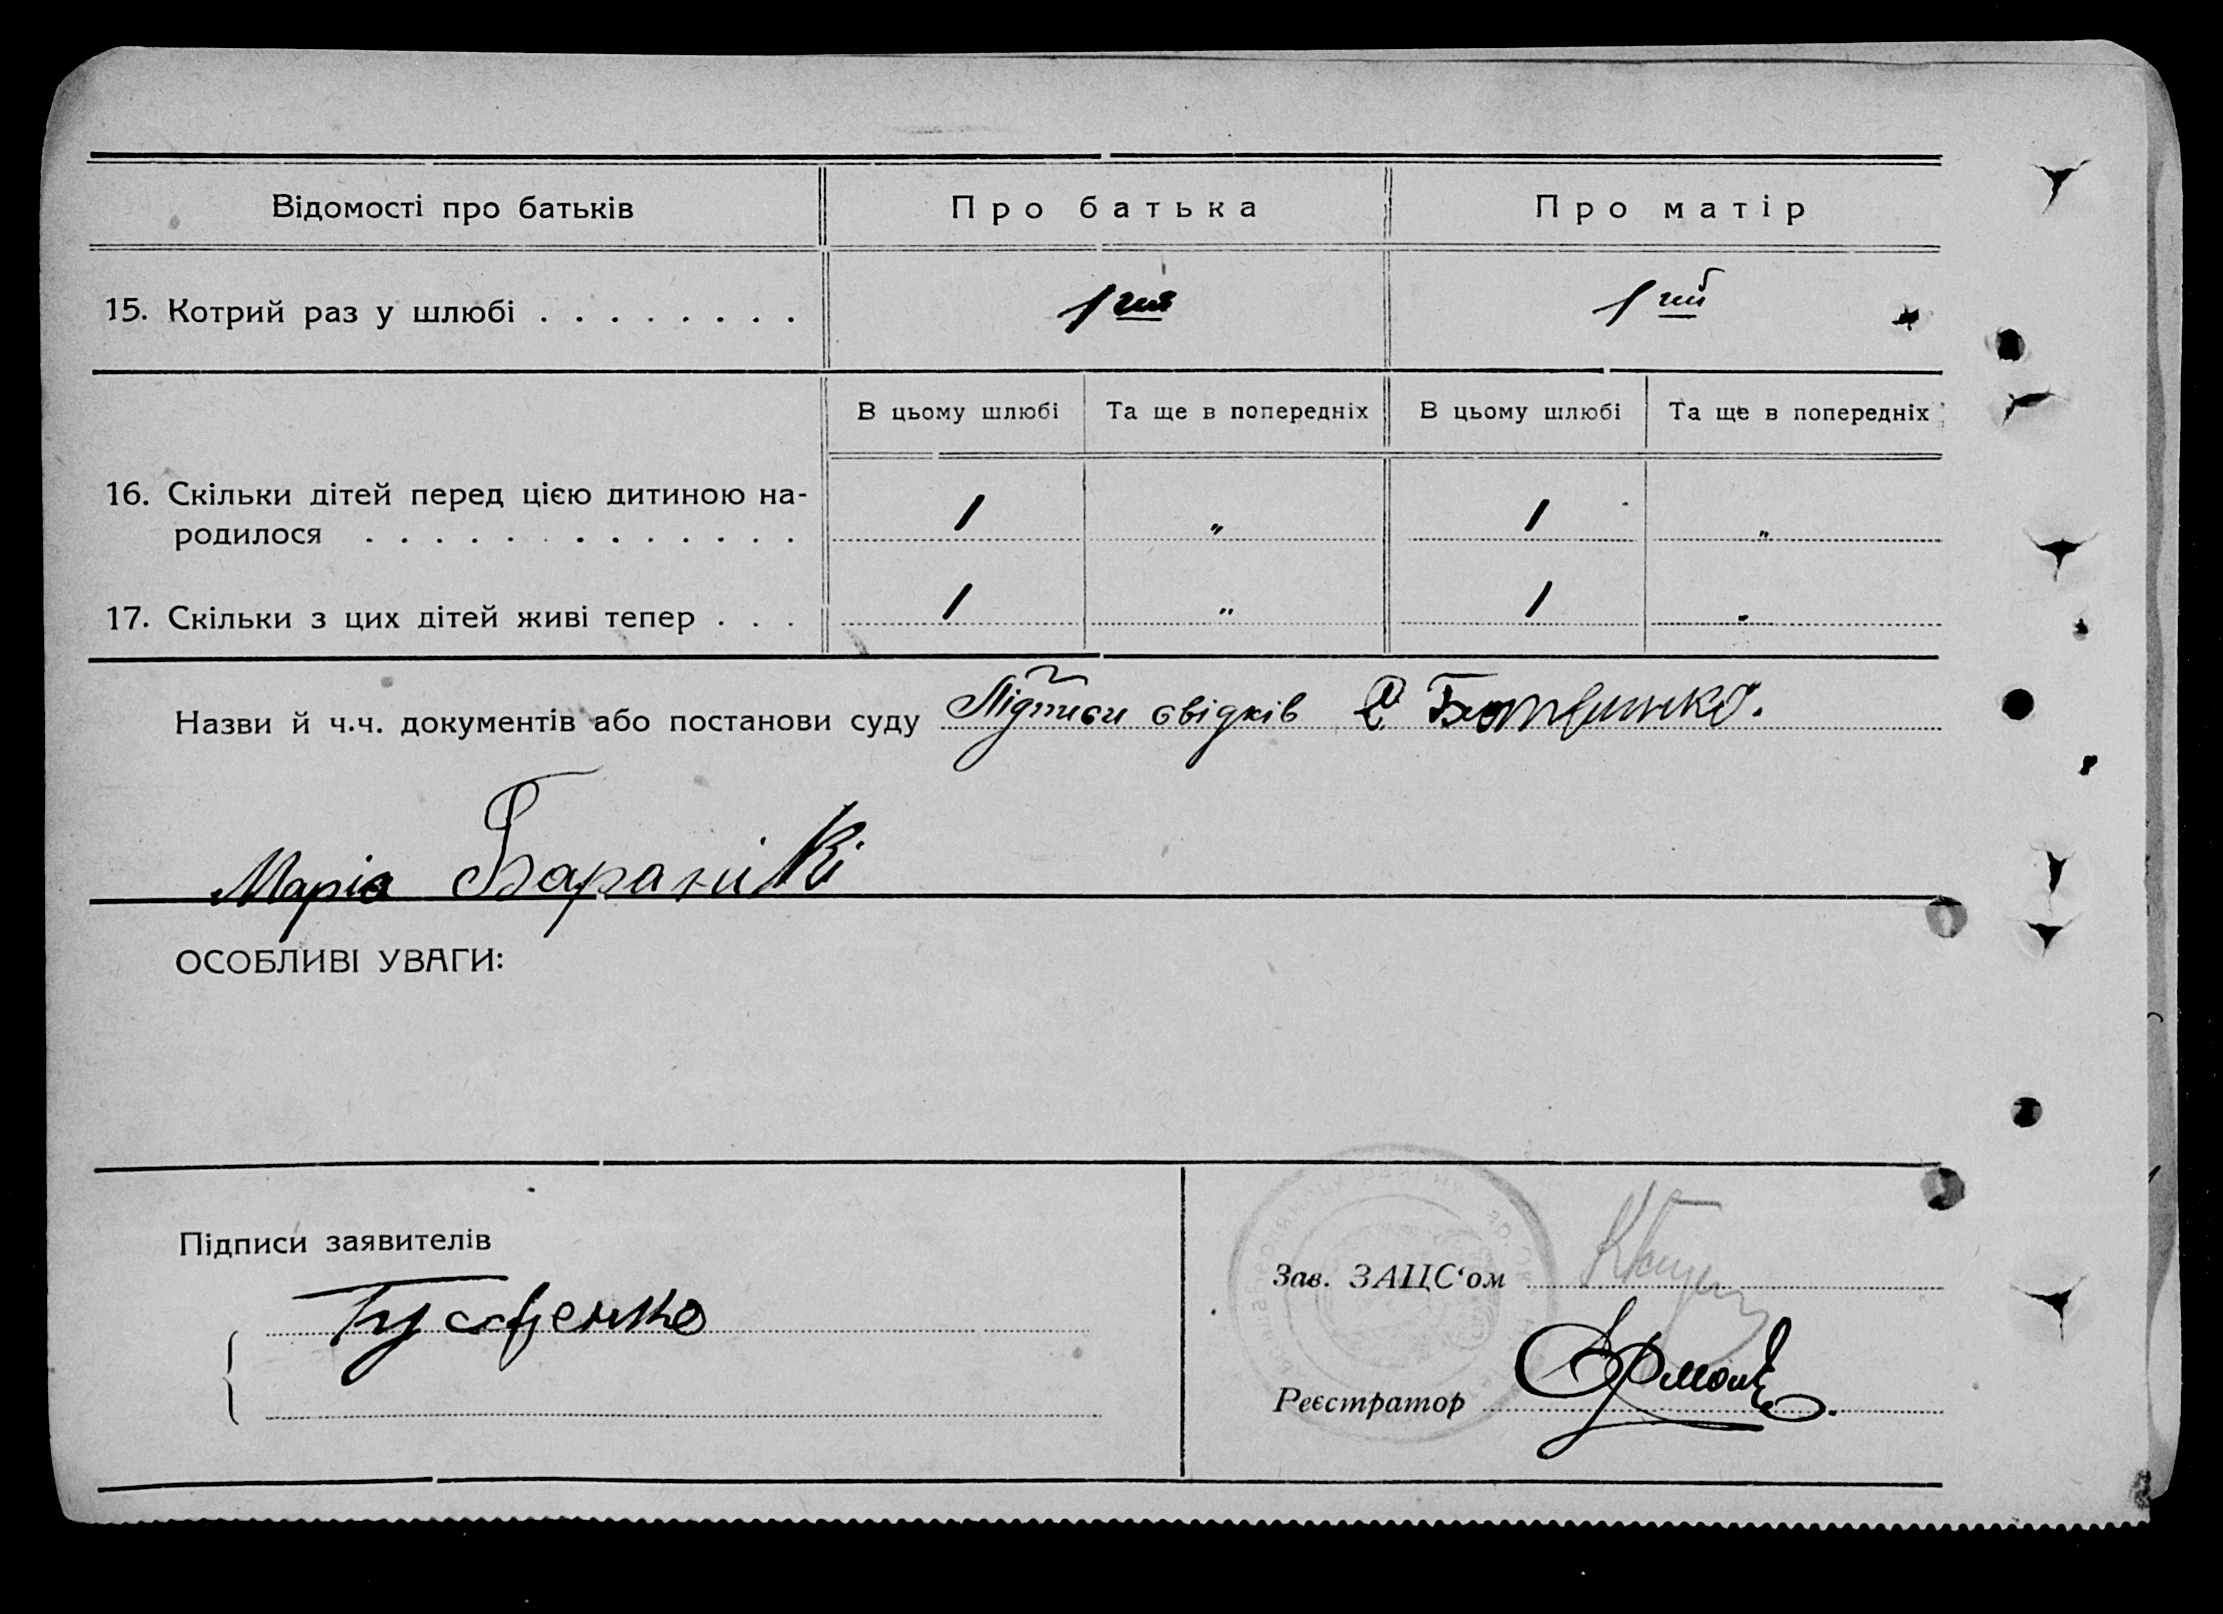 Відомості про батьків
Про батька
Про матір
15. Котрий раз у шлюбі . . . . . . . .
1
1 ий
В цьому шлюбі
Та ще в попередніх
В цьому шлюбі
Та ще в попередніх
16. Скільки дітей перед цією дитиною на-
родилося . . . . . . . . . . . . .
1
"
1
"
17. Скільки з цих дітей живі тепер . . .
1
"
1
"
Назви й ч.ч. документів або постанови суду Підписи свідків
Марія
ОСОБЛИВІ УВАГИ:
Підписи заявителів
Зав. ЗАЦС‘ом
Реєстратор